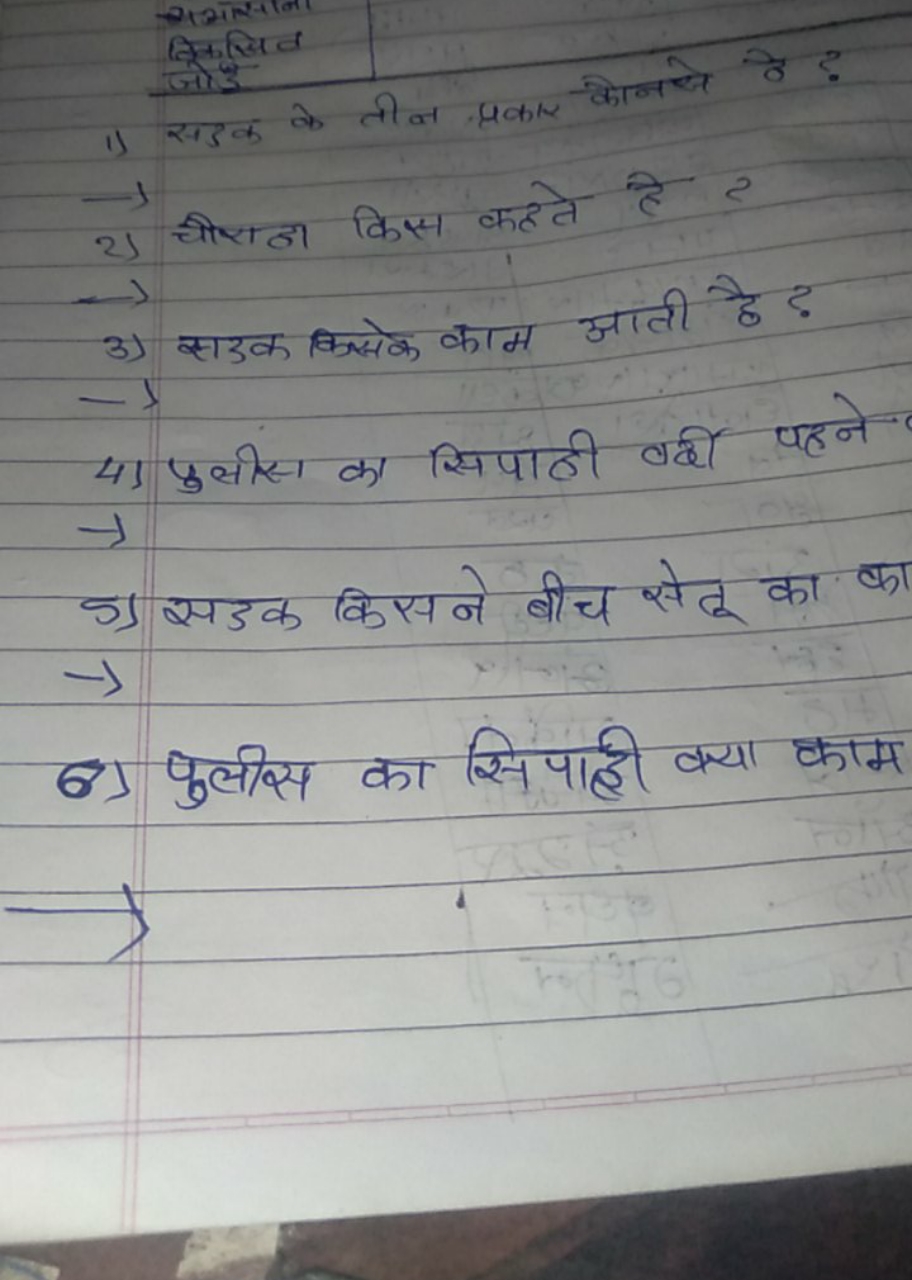 विकसित
जोडे
1) सडक के तीन प्रकार कौनसे है ?
→
2) चौराहा किस कहते है ?
→
3) सडक किसके काम आती है ?
→
4) पुलीस का सिपाही वर्दी पहने
→
5) सडक किसने बीच सेतू का का
→
6) पुलीस का सिपाही क्या काम
→